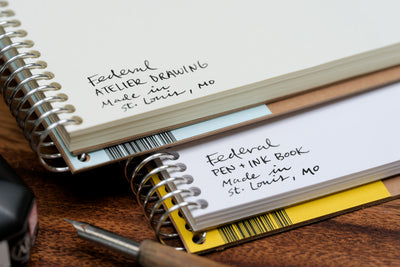 Federal
ATELIER DRAWING
Made in
St. Louis, MO
Federal
PEN + INK BOOK
made in
St. Louis, MO